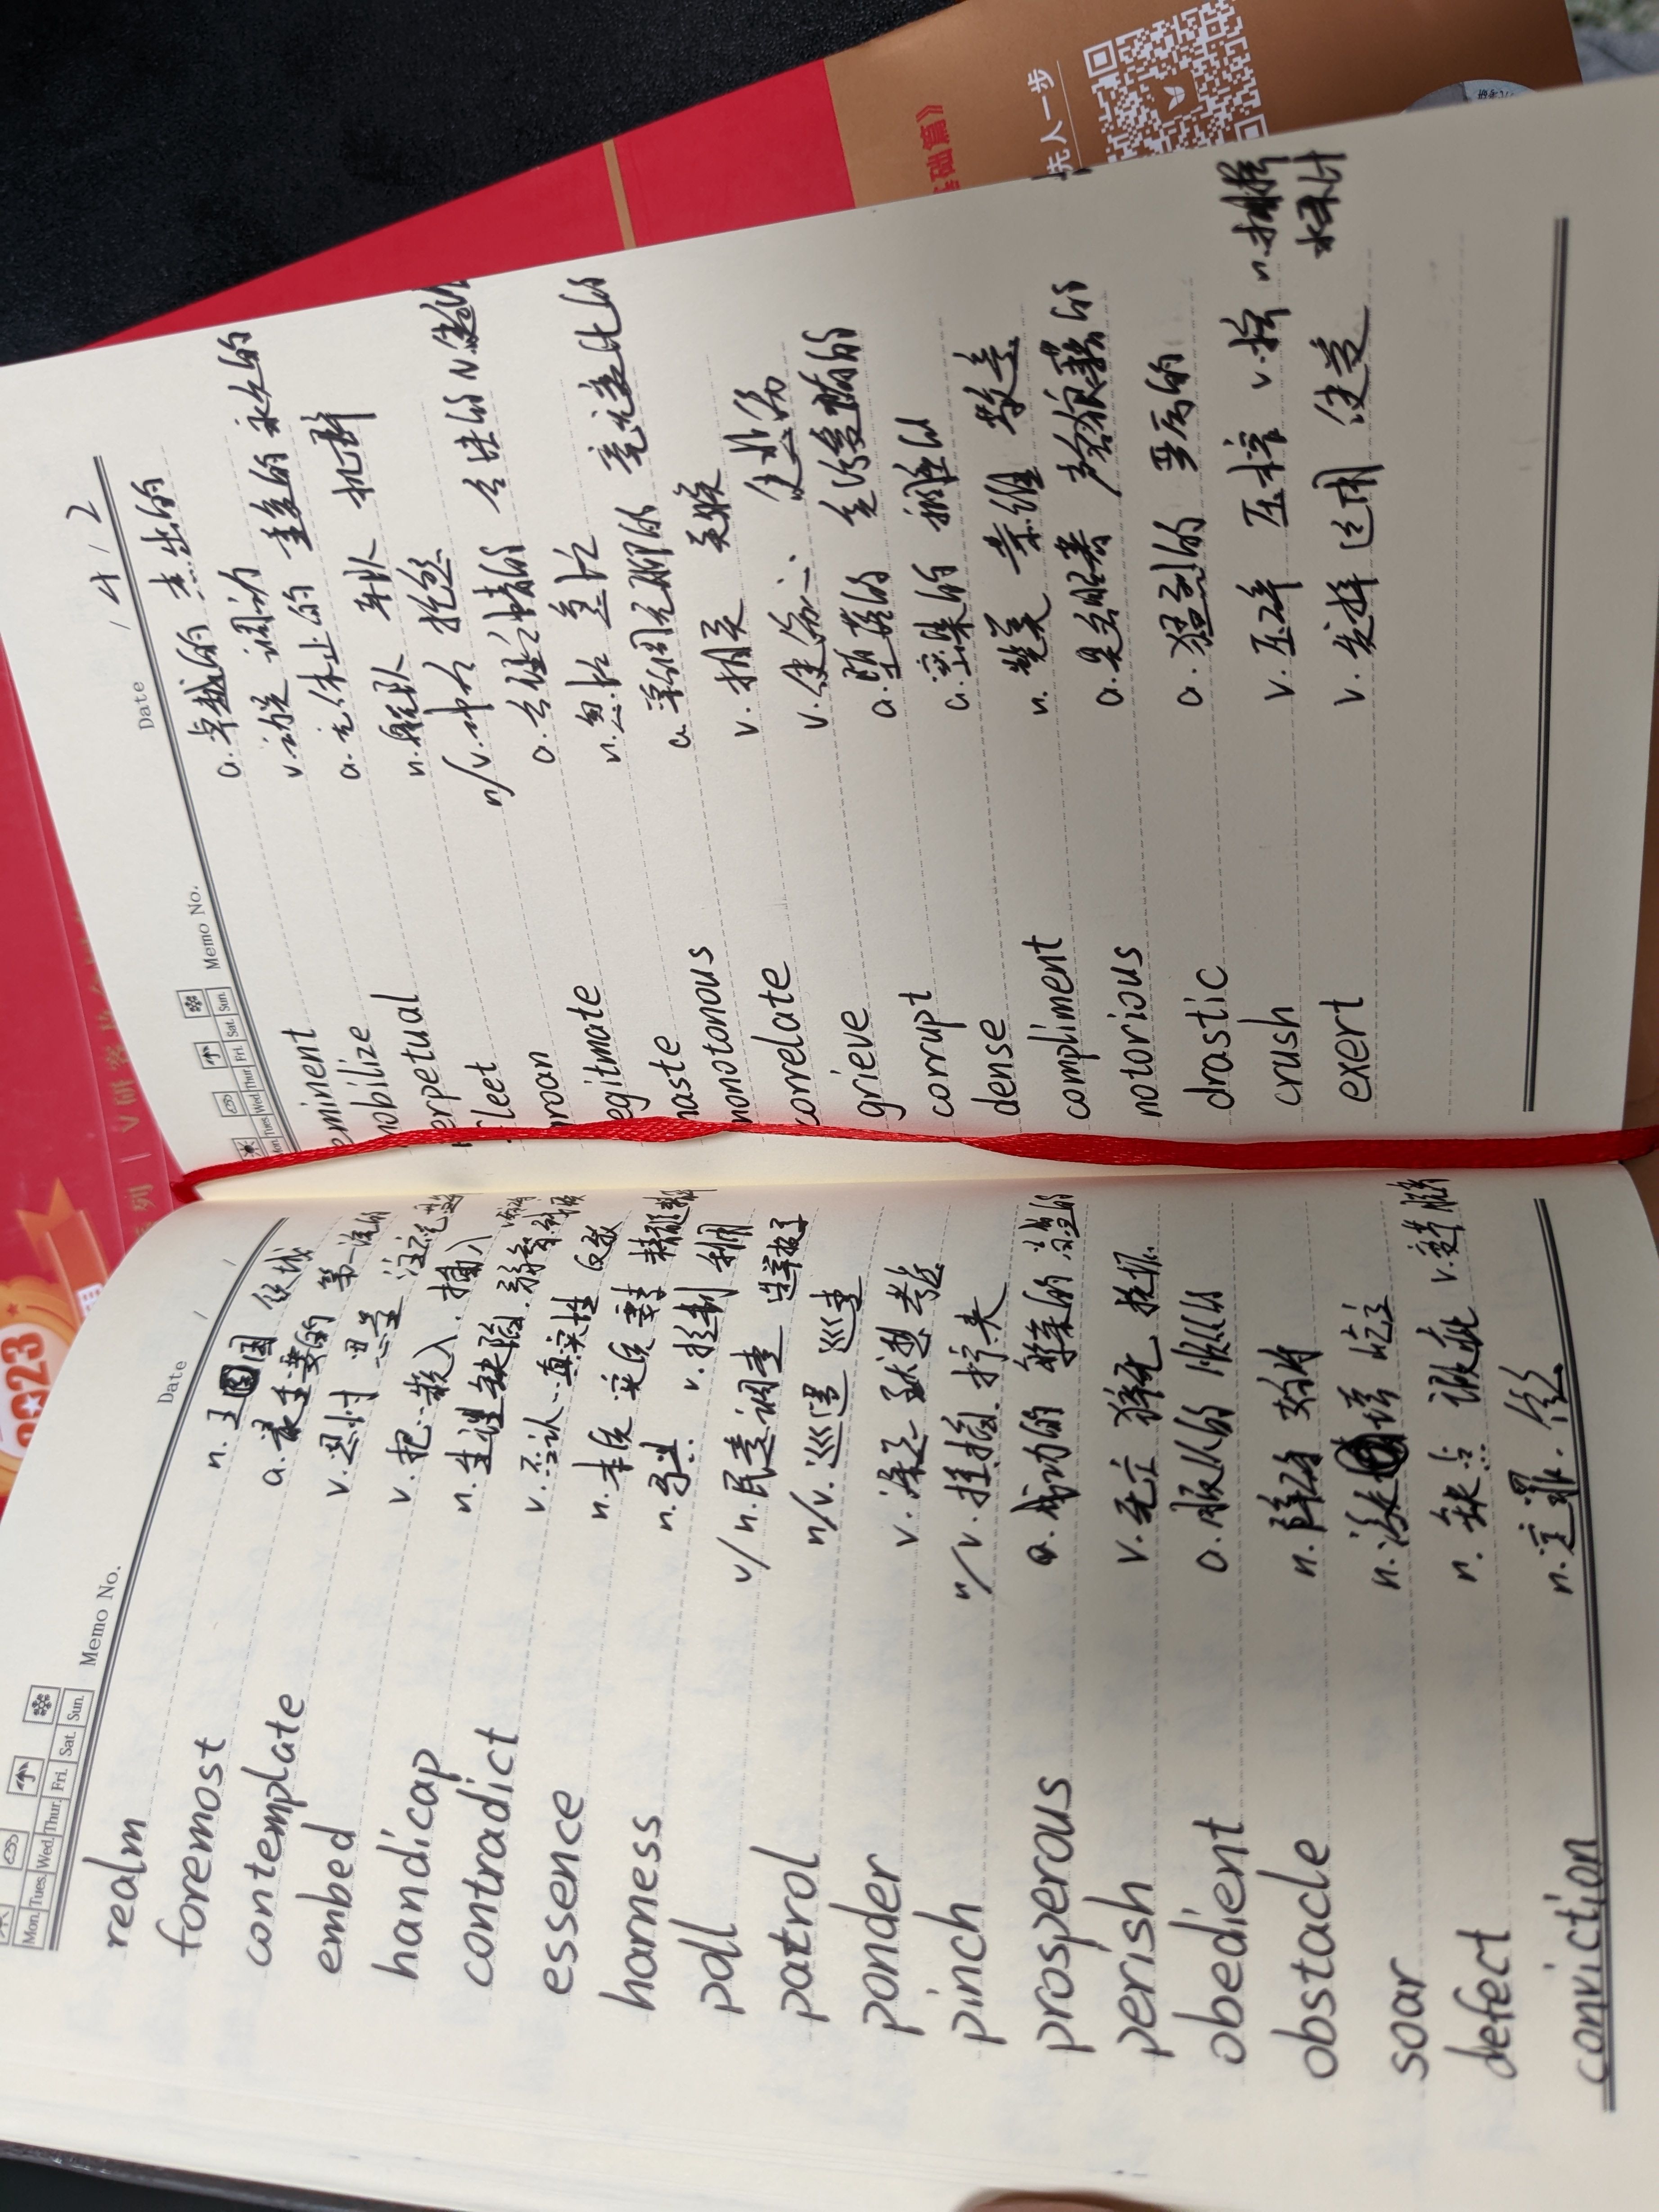 2023
V研客
基础篇》
先人一步
Mon. Tues. Wed. Thur. Fri. Sat. Sun.
Memo No.
Date / /
realm n.王国 领域
foremost a.最重要的 第一流的
contemplate v.思忖 思量 注视
embed v.把…嵌入.插入
handicap n.生理缺陷.
contradict v.否认…真实性 反驳
essence n.本质 实质
harness n.马具. v.控制 利用
poll v/n.民意调查 选举投票
patrol n/v.巡逻 巡查
ponder v.深思 默想 考虑
pinch n/v.捏掐.拧夹
prosperous a.成功的 繁荣的
perish v.死亡
obedient a.服从的 顺从的
obstacle n.障碍 妨碍
soar 屹立
defect n.缺点 瑕疵 v.变节
conviction n.定罪.信念
Mon. Tues. Wed. Thur. Fri. Sat. Sun.
Memo No.
Date / 4 / 2
eminent a.卓越的 杰出的
mobilize v.动员 调动
erpetual a.无休止的 重复的 永久的
fleet n.舰队 车队 机群
roan n/v.呻吟 抱怨
egitimate a.合法的
haste n.急忙
monotonous a.单调无聊的
correlate v.相关 关联
grieve v.使伤心. 使悲伤
corrupt a.堕落的
dense a.密集的 稠密的
compliment n.赞美 恭维 敬意
notorious a.臭名昭著 声名狼藉的
drastic a.猛烈的 严厉的
crush v.压碎 压榨
exert v.发挥 运用 使受